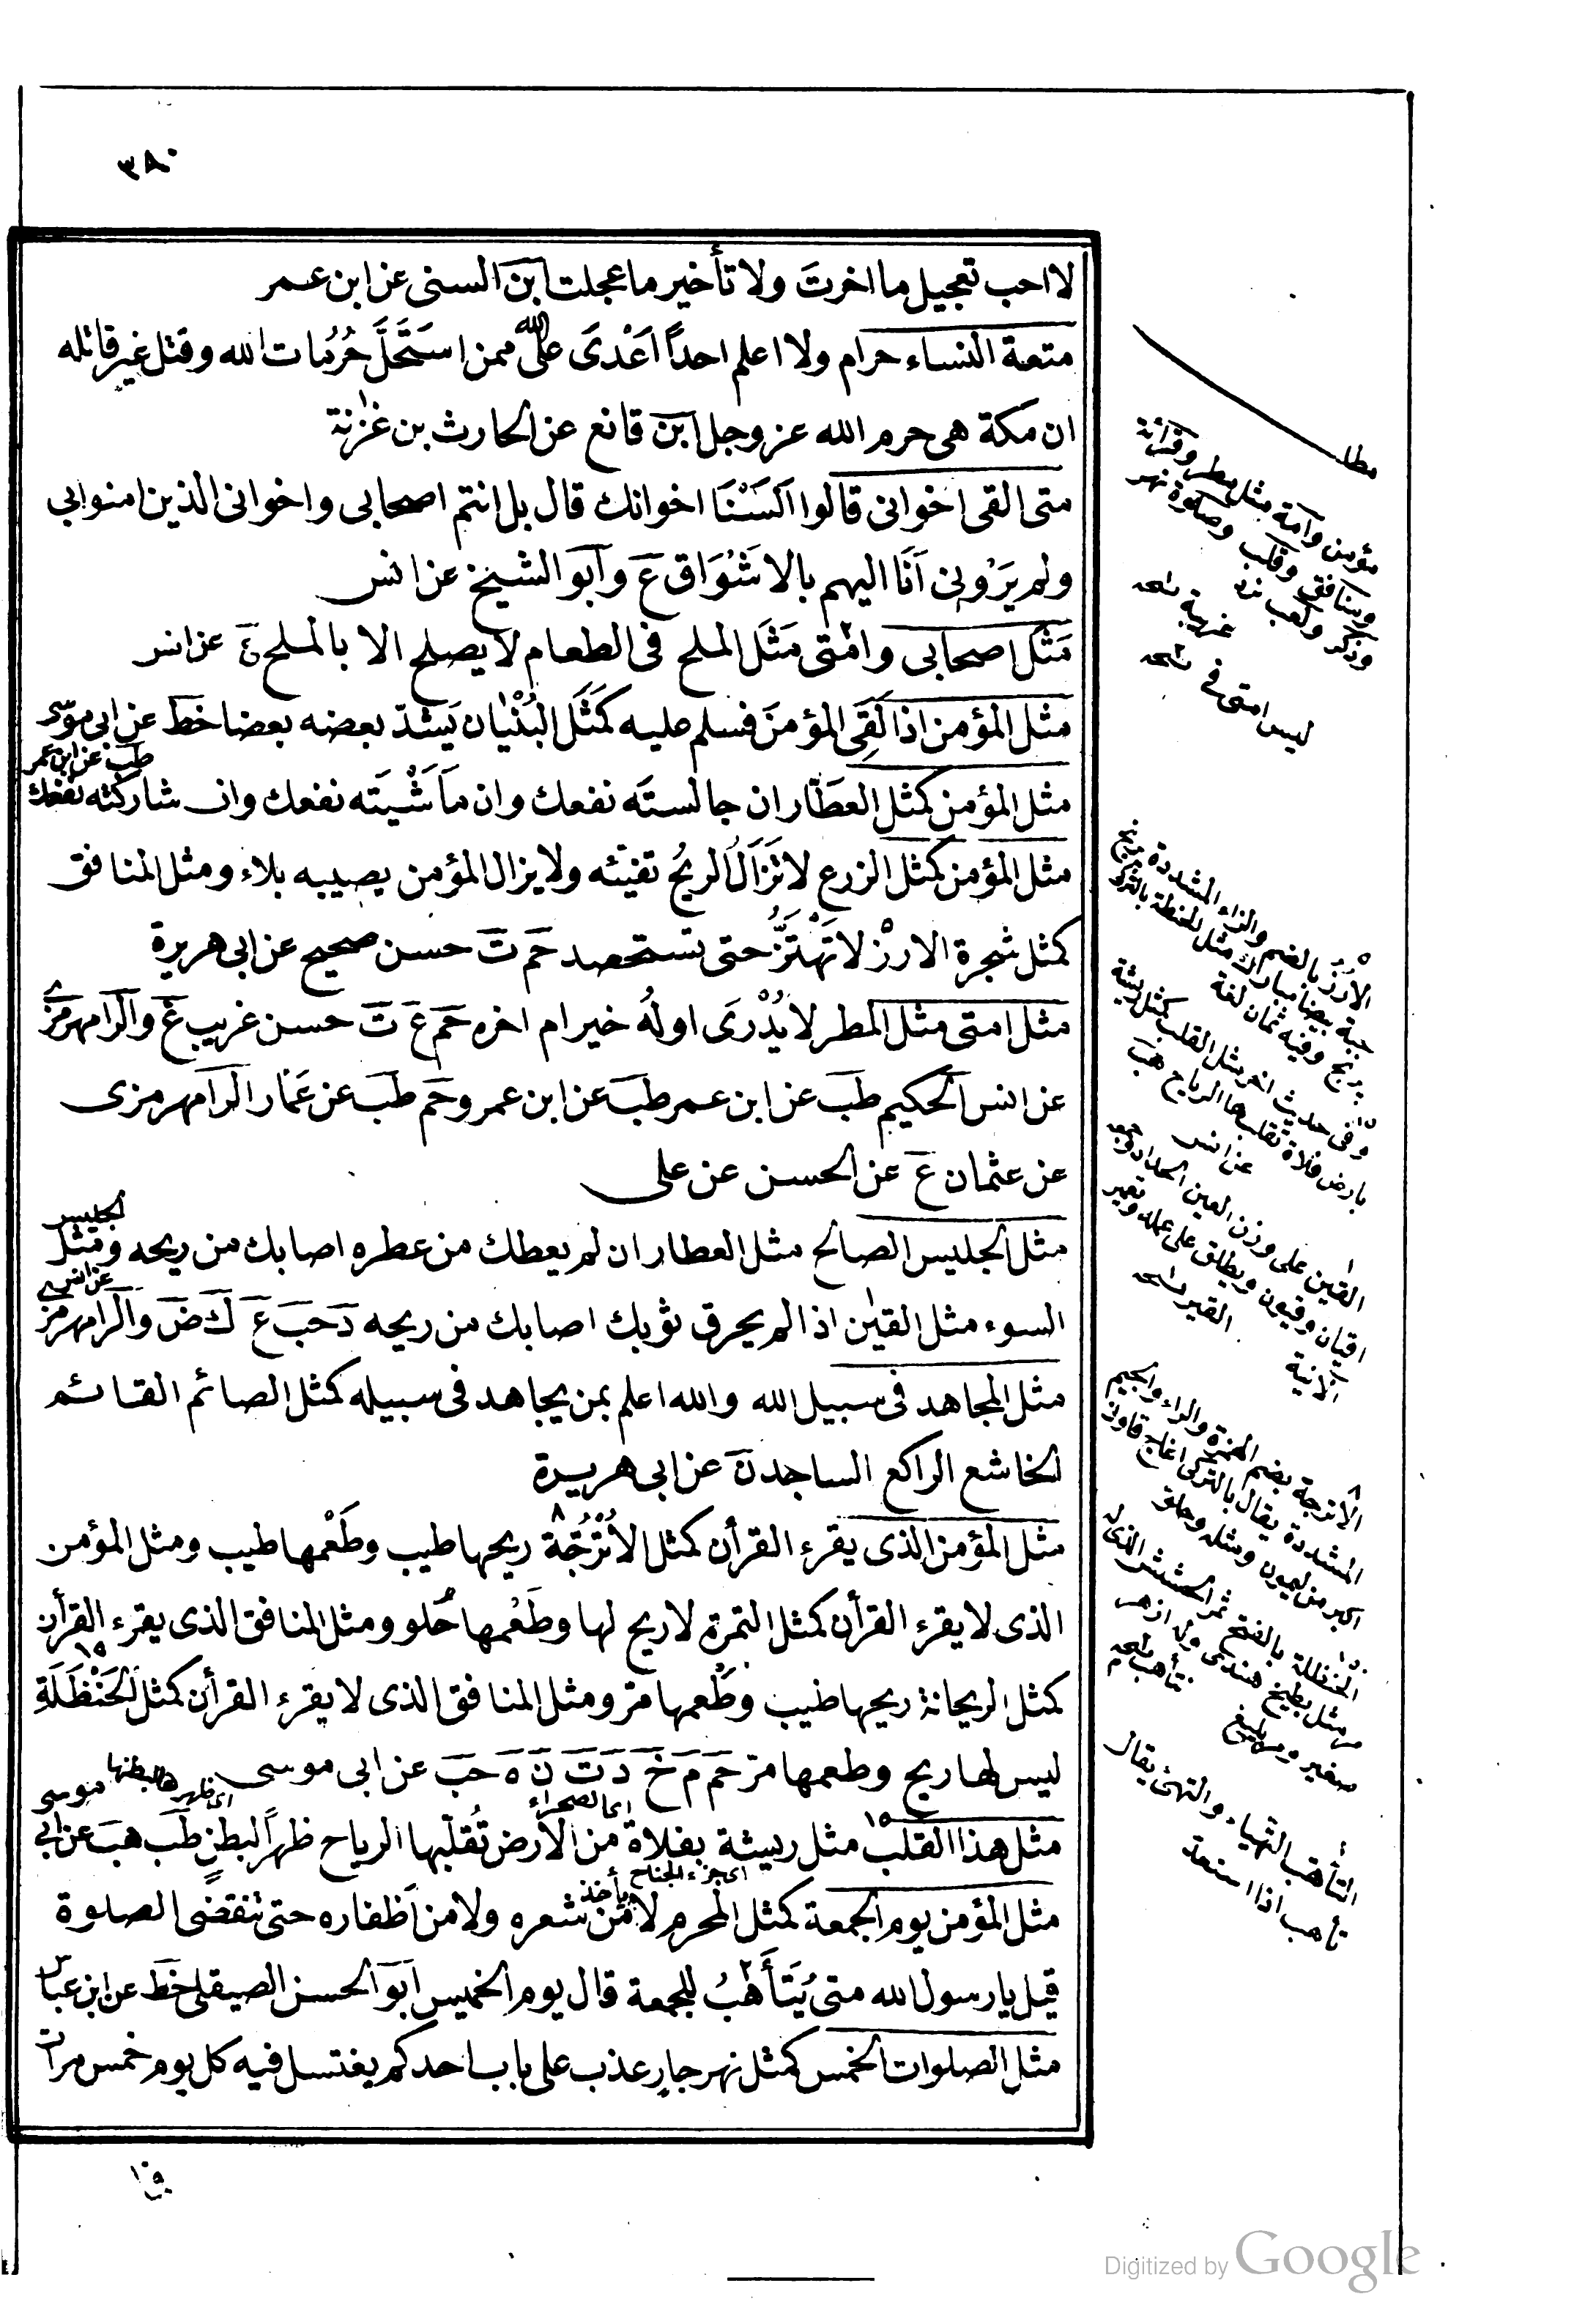 ٣٨٠
لا احب تعجيل ما اخرتَ ولا تأخير ما عجلت ابن السنى عن ابن عمر
متعة النساء حرام ولا اعلم احداً اَعْدَى على الله ممن استَحَلَّ حُرُمات الله وقتل غير قاتله
ان مكة هى حرم الله عز وجل ابن قانع عن الحارث بن غزنة
متى القى اخوانى قالوا اَلَسْنَا اخوانك قال بل انتم اصحابى واخوانى الذين امنوا بى
ولم يَرَوْنى اَنَا اليهم بالاشْوَاق ع وابو الشيخ عن انس
مَثَل اصحابى وامتى مَثَل الملح فى الطعام لا يصلح الا بالملح ع عن انس
مثل المؤمن اذا لَقِىَ المؤمنَ فسلم عليه كَمَثَل البُنْيَان يَشدّ بعضه بعضا خط عن ابى موسى
طب عن ابن عمر
مثل المؤمن كمثل العطّار ان جالستَه نفعك وان مَاشَيْتَه نفعك وان شاركته نفعك
مثل المؤمن كمثل الزرع لا تَزَالُ الريحُ تفيئه ولا يزال المؤمن يصيبه بلاء ومثل المنافق
كمثل شجرة الارزْ لا تَهْتَزُّ حتى تستحصد حم ت حسن صحيح عن ابى هريرة
مثل امتى مثل المطر لا يُدْرَى اولُه خير ام اخره حم ع ت حسن غريب غ والرامهرمزى
عن انس الحكيم طب عن ابن عمر طب عن ابن عمرو حم طب عن عَمّار الرامهرمزى
عن عثمان ع عن الحسن عن على
مثل الجليس الصالح مثل العطار ان لم يعطك من عطره اصابك من ريحه ومثل الجليس
السوء مثل القين اذا لم يحرق ثوبك اصابك من ريحه د حب ع ك ض والرامهرمزى عن انس
مثل المجاهد فى سبيل الله والله اعلم بمن يجاهد فى سبيله كمثل الصائم القائم
الخاشع الراكع الساجد ن عن ابى هريرة
مثل المؤمن الذى يقرء القرأن كمثل الاُتْرُجّة ريحها طيب وطَعْمها طيب ومثل المؤمن
الذى لا يقرء القرأن كمثل التمرة لا ريح لها وطَعْمها حُلو ومثل المنافق الذى يقرء القرأن
كمثل الريحانة ريحها طيب وطَعمها مرّ ومثل المنافق الذى لا يقرء القرأن كمثل الحَنْظَلَةِ
ليس لها ريح وطعمها مرّ حم م خ د ت ن ه حب عن ابى موسى
اى الصحراء اى ظهرها لبطنها
مثل هذا القلب مثل ريشة بفلاة من الارض تُقلّبها الرياح ظهراً لبطن طب هب عن ابى موسى
اى جزء الجناح
مثل المؤمن يوم الجمعة كمثل المحرم لا يأخذ من شعره ولا من اظفاره حتى تنقضى الصلوة
قيل يا رسول الله متى يُتَأَهَّبُ للجمعة قال يوم الخميس ابو الحسن الصيقلى خط عن ابن عباس
مثل الصلوات الخمس كمثل نهر جار عذب على باب احدكم يغتسل فيه كل يوم خمس مرات
مطلـ
مؤمن وامة مثل مطر
ومنافق وقلب وصلوة نهر
ليس امتى فى
الاُرُزُّ بالضم والزاء المشددة برنج
حبة بيضا مبارك مثل الحنطة بالتركى
برنج وفيه ثمان لغة
وفى حديث اخر مثل القلب كمثل ريشة
بارض فلاة تقلبها الرياح هب
عن انس
القين على وزن العين الحداد
اقيان وقيون ويطلق على عمله
الآنية
الاترجة بضم الهمزة والراء والجيم
المشددة يقال بالتركى اغاج قاونى
اكبر من ليمون ومثله وحلو
الحنظلة بالفتح ثمر
مثل بطيخ هندى
التأهب التهياء والتهئ يقال
تأهب اذا استعد
Digitized by Google